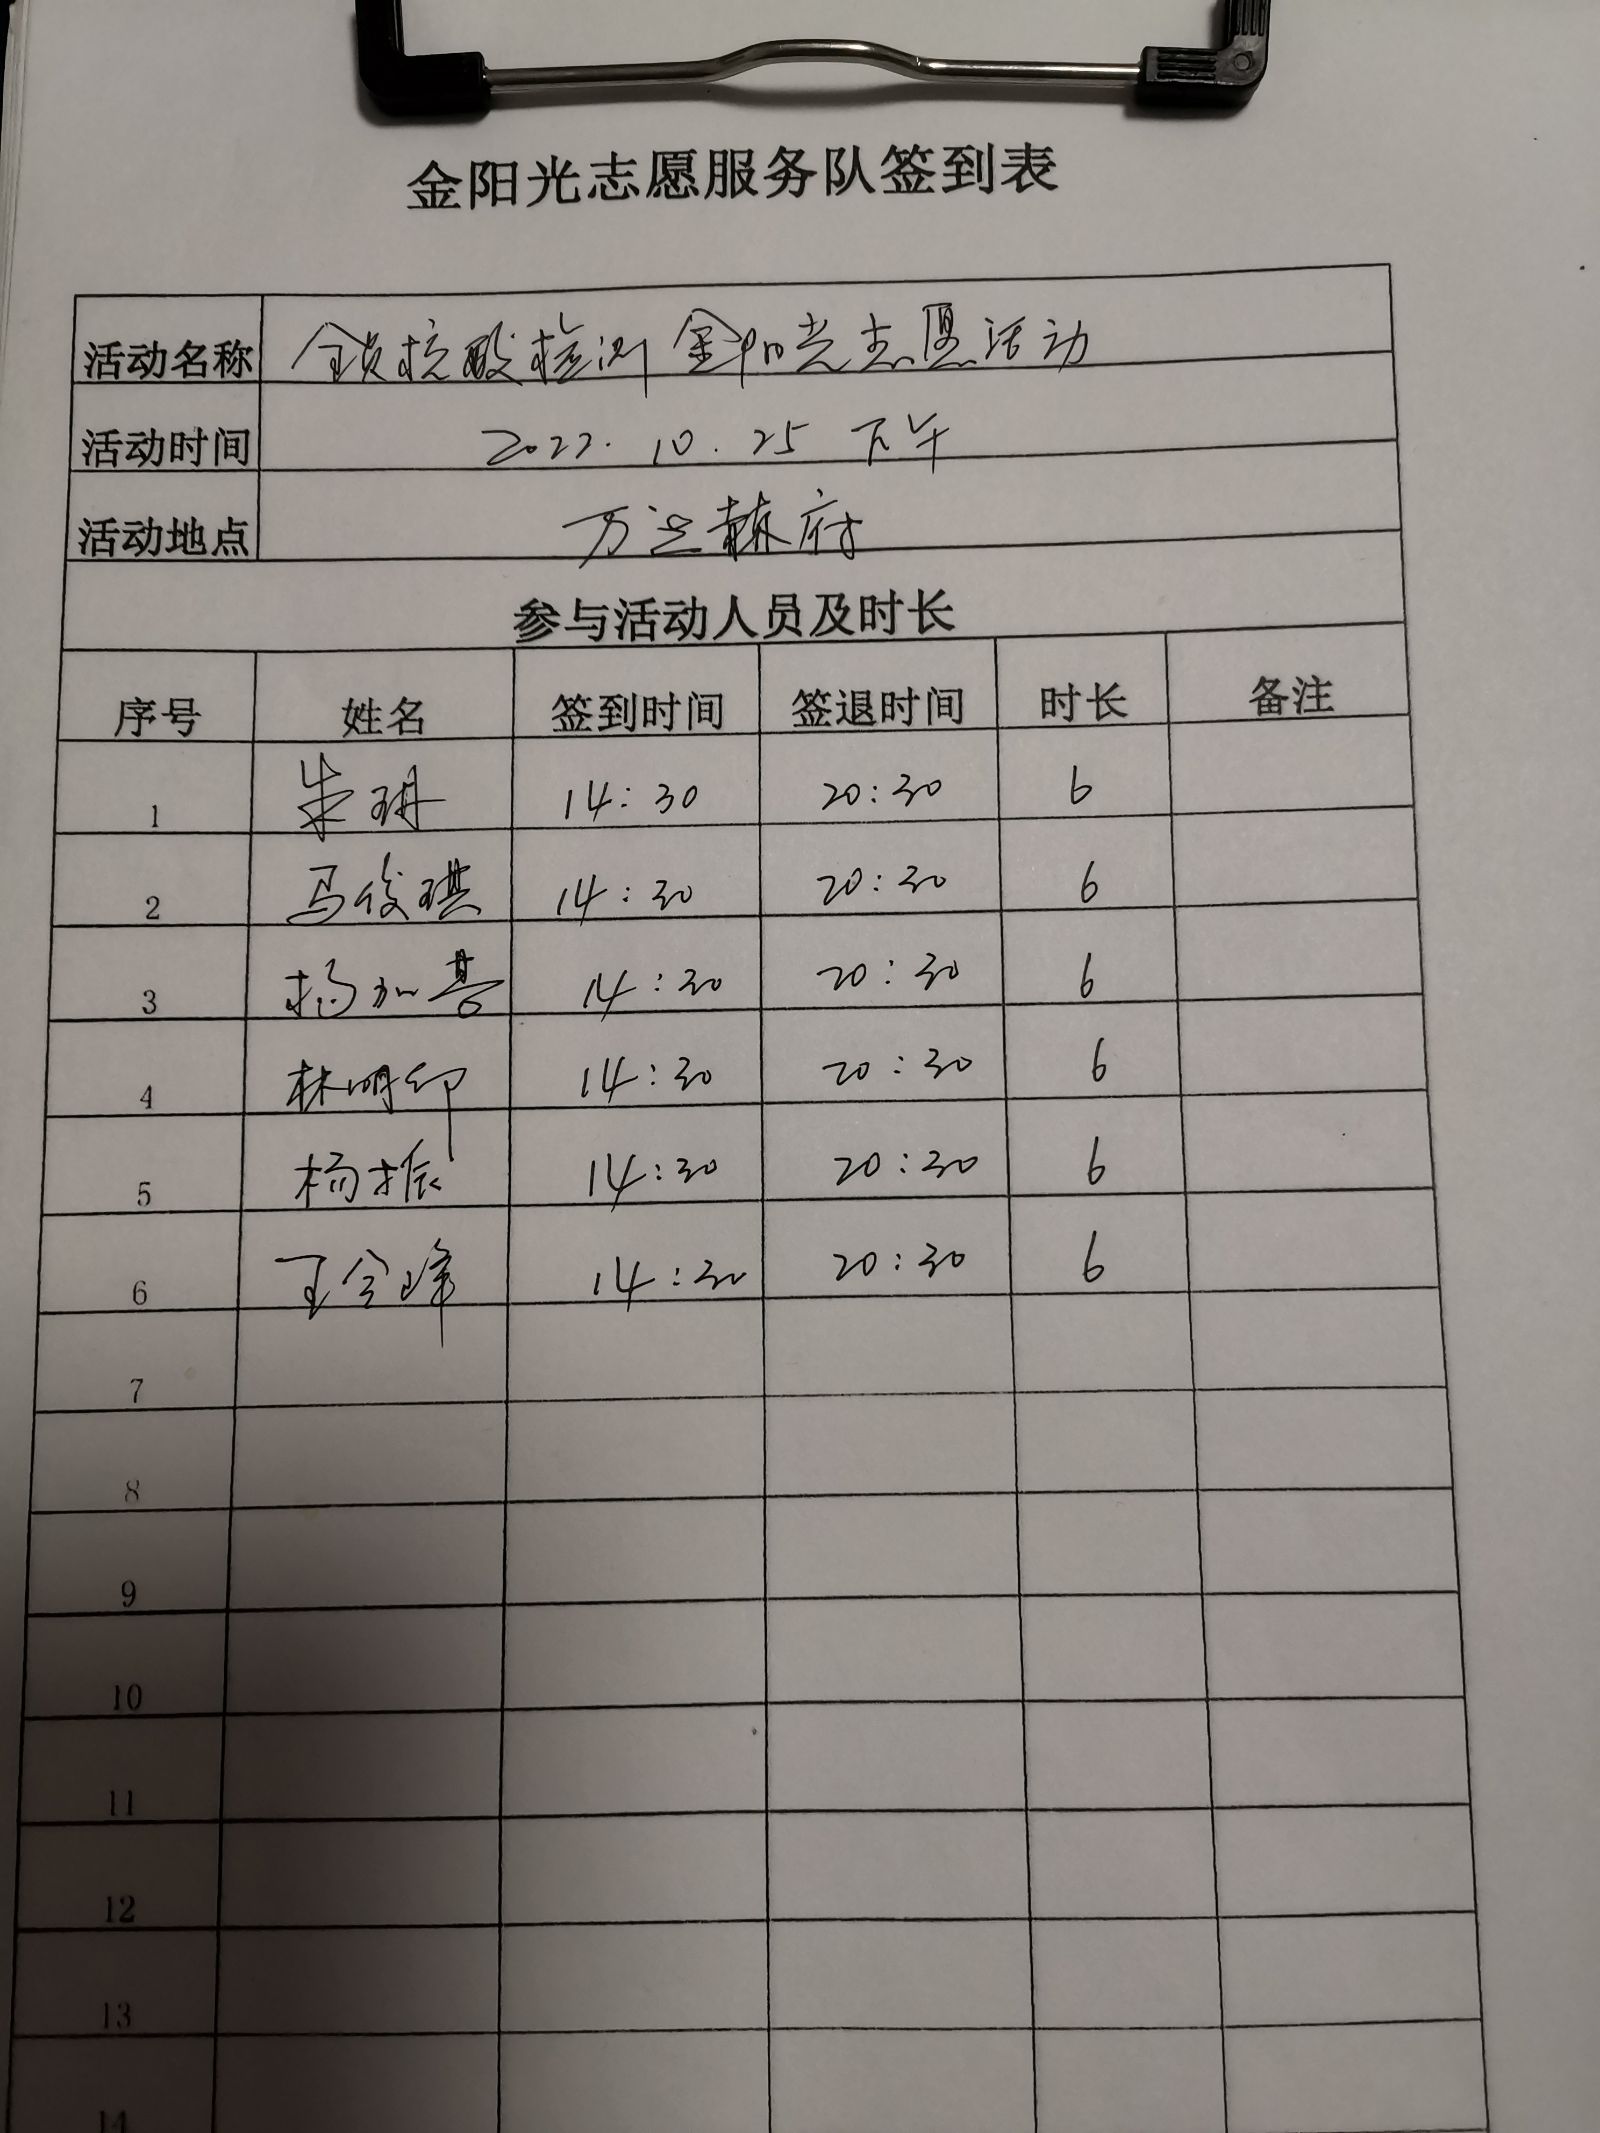 金阳光志愿服务队签到表
活动名称 全员核酸检测 金阳光志愿活动
活动时间 2022.10.25 下午
活动地点 万 府
参与活动人员及时长
序号 姓名 签到时间 签退时间 时长 备注
1 朱 14:30 20:30 6
2 马俊琪 14:30 20:30 6
3 杨加喜 14:30 20:30 6
4 林明印 14:30 20:30 6
5 杨振 14:30 20:30 6
6 王令峰 14:30 20:30 6
7
8
9
10
11
12
13
14